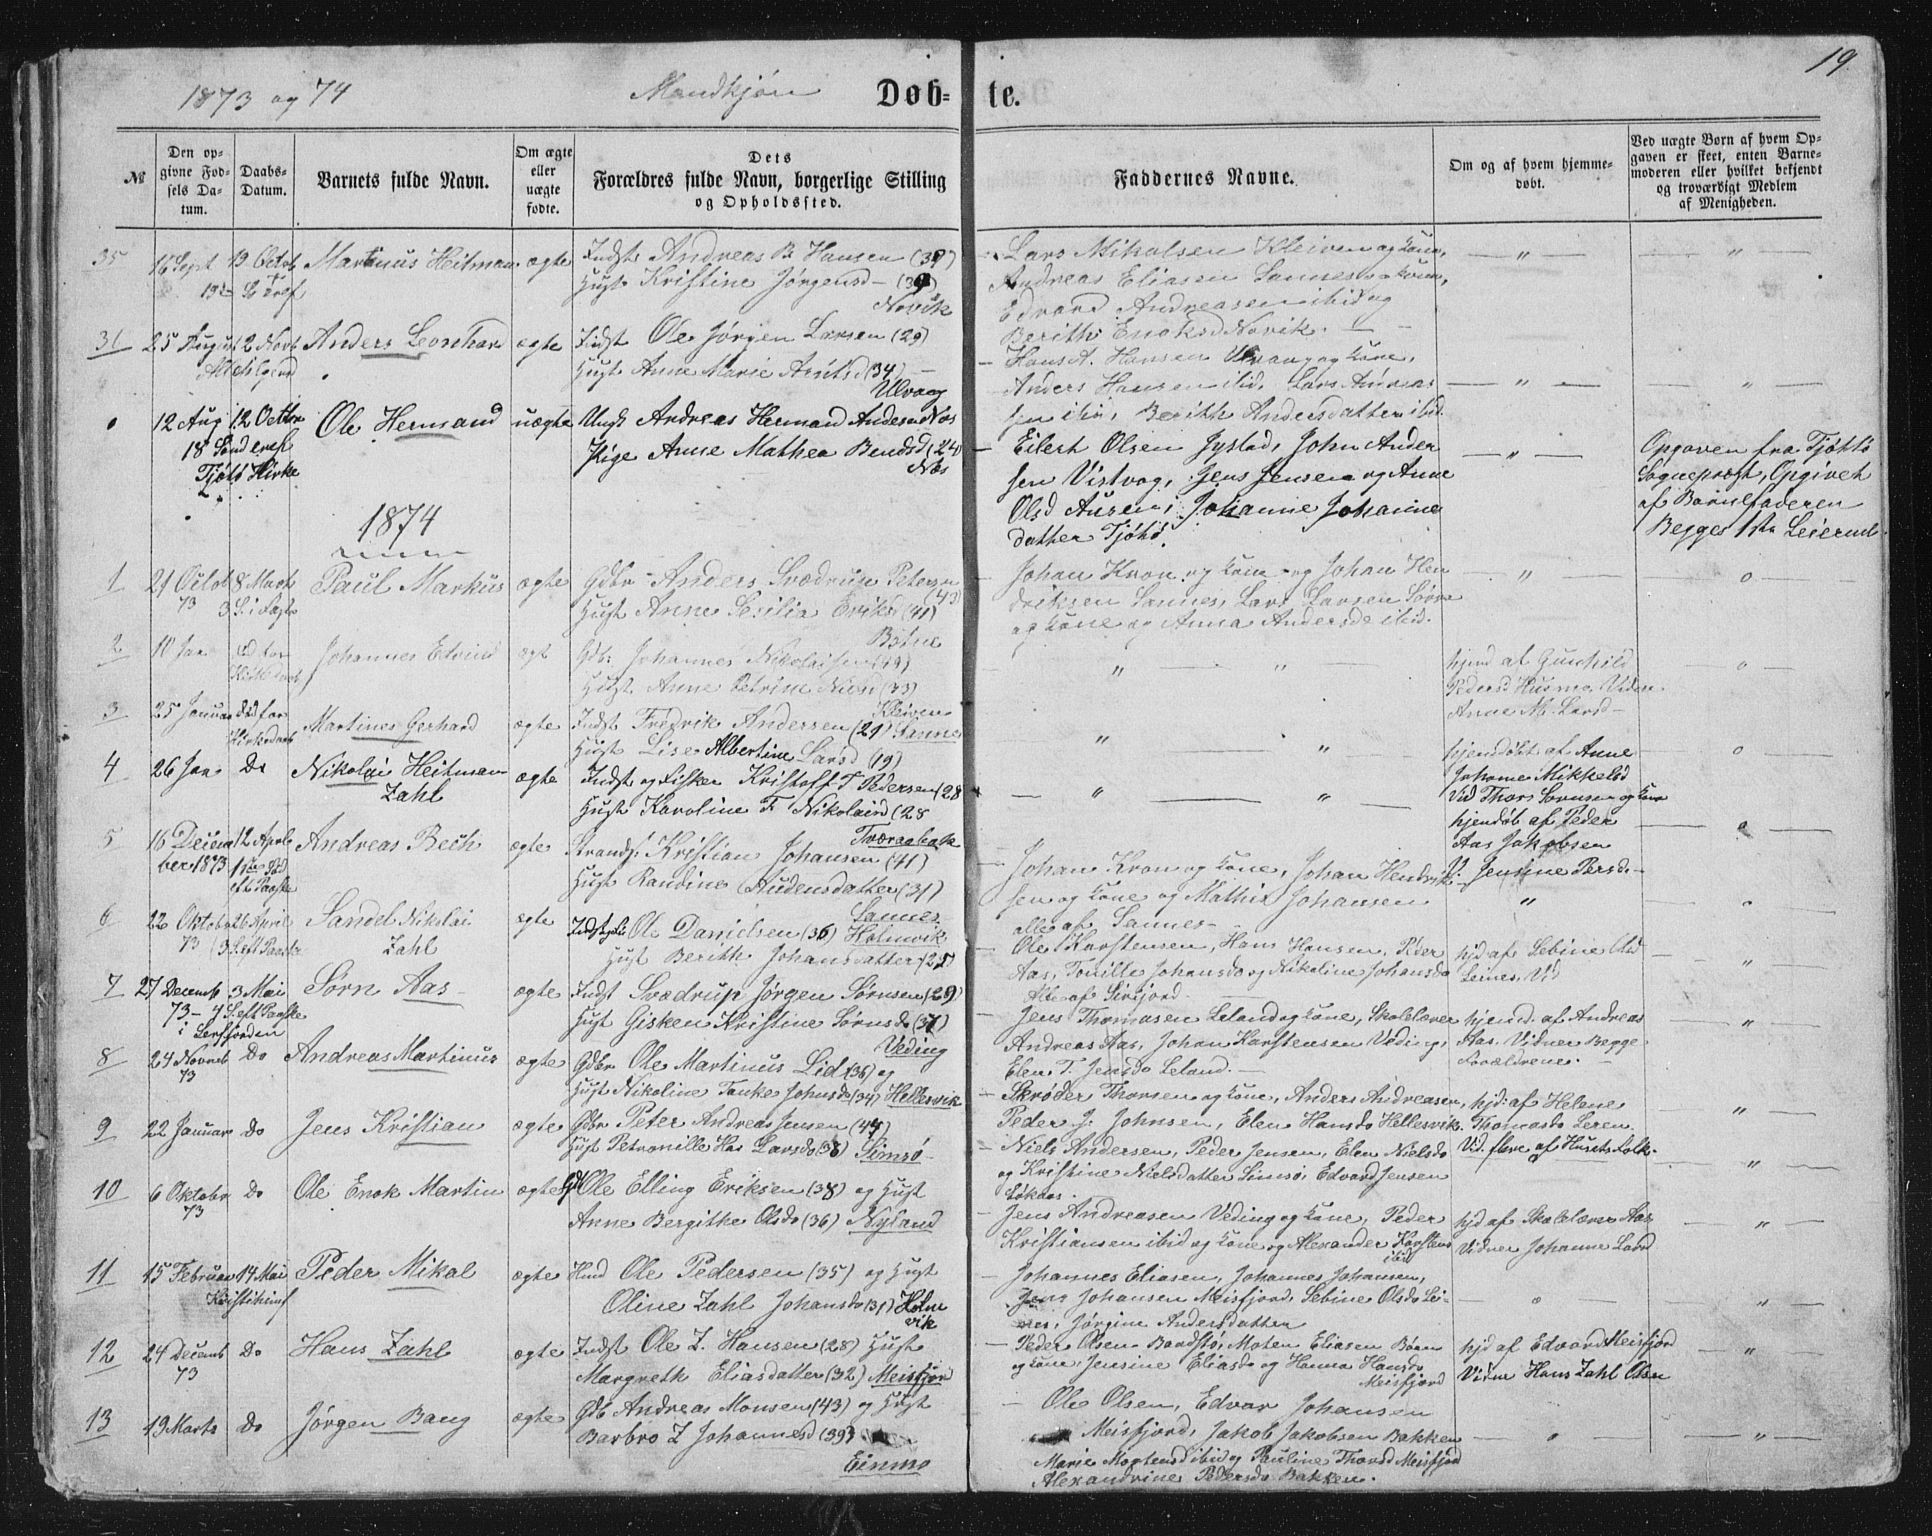 19
1873 og 74
Mandkjøn
Døb-
te.
№
Den op-
givne Fød-
sels Da-
tum.
Daabs-
Datum.
Barnets fulde Navn.
Om ægte
eller
uægte
fødte.
Dets
Forældres fulde Navn, borgerlige Stilling
og Opholdssted.
Faddernes Navne.
Om og af hvem hjemme-
døbt.
Ved uægte Børn af hvem Op-
gaven er skeet, enten Barne-
moderen eller hvilket bekjendt
og troværdigt Medlem
af Menigheden.
35 16 Sept 19 Octbr Martinus Heitman ægte Indst Andreas B Hansen (39)
Hust Kristine Jørgensd
Novik
Lars Mikalsen Kleiven og Kone,
Andreas Eliasen Sannes og Kone,
Edvard Andreasen ibid og
Berith Enoksd Novik.
31 25 August 2 Novb Anders Leonhar ægte Indst Ole Jørgen Larsen (29)
Hust Anne Marie Arntsd (34)
Ulvang
Hans A. Hansen Ulvang og Kone,
Anders Hansen ibid, Lars Andreas
sen ibid, Berith Andersdatter ibid.
12 Aug 12 Octbr Ole Hermand uægte Ungk Andreas Herman Andersen Næs
18 Sønd eref
Tjøtø Kirke
Pige Anne Mathea Bendsd (24)
Næs
Eilert Olsen Jystad, John Ander
sen Vistvag, Jens Jensen og Anne
Olsd Ausen, Johanne Johanne
datter Tjøtø.
Opgaven fra Tjøttø
Sognepræst, Opgivet
af Barnefaderen
Begges 1ste Leierm
1874
1 21 Octob 8 Marts Paul Markus ægte Gdbr Anders Svedrup Petersen
73 3 S. i Faste (43)
Hust Anne Secilia Eriksd (41)
Botne
Johan Kron og Kone og Johan Hen
driksen Sannes, Lars Larsen Sørra
og Kone og Anna Andersd ibid.
2 10 Jan Johannes Edvind ægt Gdb. Johannes Nikolaisen
Hust Anne Petrine Nilsd (33)
Kleiven
hjemd af Gunhild
Pedersd Husmo, Viden
Anne M. Larsd
3 25 Januar død før Martines Gerhard ægte Indst Fredrik Andersen (21) Sannes
Kirkedaab
Hust Lise Albertine Larsd (19)
hjemdøbt af Anne
Johanne Mikkelsd
Vid Thor Sørensen og Kone
4 26 Jan Do Nikolai Heitman ægte Indst og Fisker Kristoff T Pedersen (28
Zahl
Hust Karoline F Nikolaisd (28
Tværaabak
hjemdøb af Peder
Aas Jakobsen
V. Jensine Persd.
5 16 Decem 12 April Andreas Bech ægte Strands. Kristian Johansen (41)
ber 1873
eft Paaske
Hust Randine Audensdatter (31)
Sannes
Johan Kron og Kone, Johan Hendrik-
sen og Kone og Mathis Johansen
alle af Sannes
6 22 Oktobr 26 April Sandel Nikolai ægte Ole Danielsen (36) Holmvik
73 (3 S. eft Paaske Zahl
Hust Berith Johansdatter (25)
Ole Karstensen, Hans Hansen, Peder
Aas, Tomille Johansd og Nikoline Johansd
Alle af Sirifjord
hjd af Sebine Olsd
Leines, Vid
7 27 Decemb 3 Mai Sørn Aas ægte Indst Svedrup Jørgen Sørnsen (29)
73 4 S. eft Paaske
i Lerfjorden
Hust Gisken Kristine Sørnsd (31)
Veding
Jens Thomasen Leland og Kone, Skolelærer
Andreas Aas, Johan Karstensen Veding,
Elen T. Jensd Leland.
hjemd. af Andreas
Aas. Vidner Begge
Forældrene.
8 24 Novmb Do Andreas Martinus ægte Gdbr Ole Martinus Lid (36) og
73
Hust Nikoline Tanke Johnsd (34) Hellesvik
Skrøder Thorsen og Kone, Anders Andreasen,
Peder J. Johnsen, Elen Hansd Hellesvik.
hjd. af Helene
Thomasd Leren
9 22 Januar Do Jens Kristian ægte Gdbr Peter Andreas Jensen (44)
Hust Petronille Has Larsd (38) Simsø
Niels Andersen, Peder Jensen, Elen Nielsd
og Kristine Nielsdatter Simsø, Edvard Jensen
Løkaas.
Vid. flere af Husets Folk.
10 6 Oktobr Do Ole Enok Martin ægte Gd Ole Elling Eriksen (38) og Hust
73
Anne Bergithe Olsd (36) Nyland
Jens Andreasen Veding og Kone, Peder
Kristiansen ibid og Kone og Alexander Karstens
ibid
hjd af Skolelærer Aas
Vidner Johanne Larsd
11 15 Februar 14 Mai Peder Mikal ægte Hmd Ole Pedersen (35) og Hust
Kristihimf
Oline Zahl Johansd (31) Holm
vik
Johannes Eliasen, Johannes Johansen,
Jens Johansen Meisfjord, Sebine Olsd Lei-
nes, Jørgine Andersdatter
12 24 Decemb Do Hans Zahl ægte Indst Ole Z. Hansen (28) Hust
73
Margreth Eliasdatter (32) Meisfjord
Peder Olsen Baadstø, Moten Eliasen Bøen
og Kone, Jensine Eliasd og Hanna Hansd
Meisfjord
hjd af Edvard Meisfjord
Vidne Hans Zahl Olsen
13 19 Marts Do Jørgen Bang ægte Gdb Andreas Monsen (43) og Hust
Barbro Z Johannesd (39)
Einmo
Ole Olsen, Edvar Johansen
Meisfjord, Jakob Jakobsen Bakken
Marie Mortensd ibid og Pauline Thorsd Meisfjord
Alexandrine Pedersd Bakken.